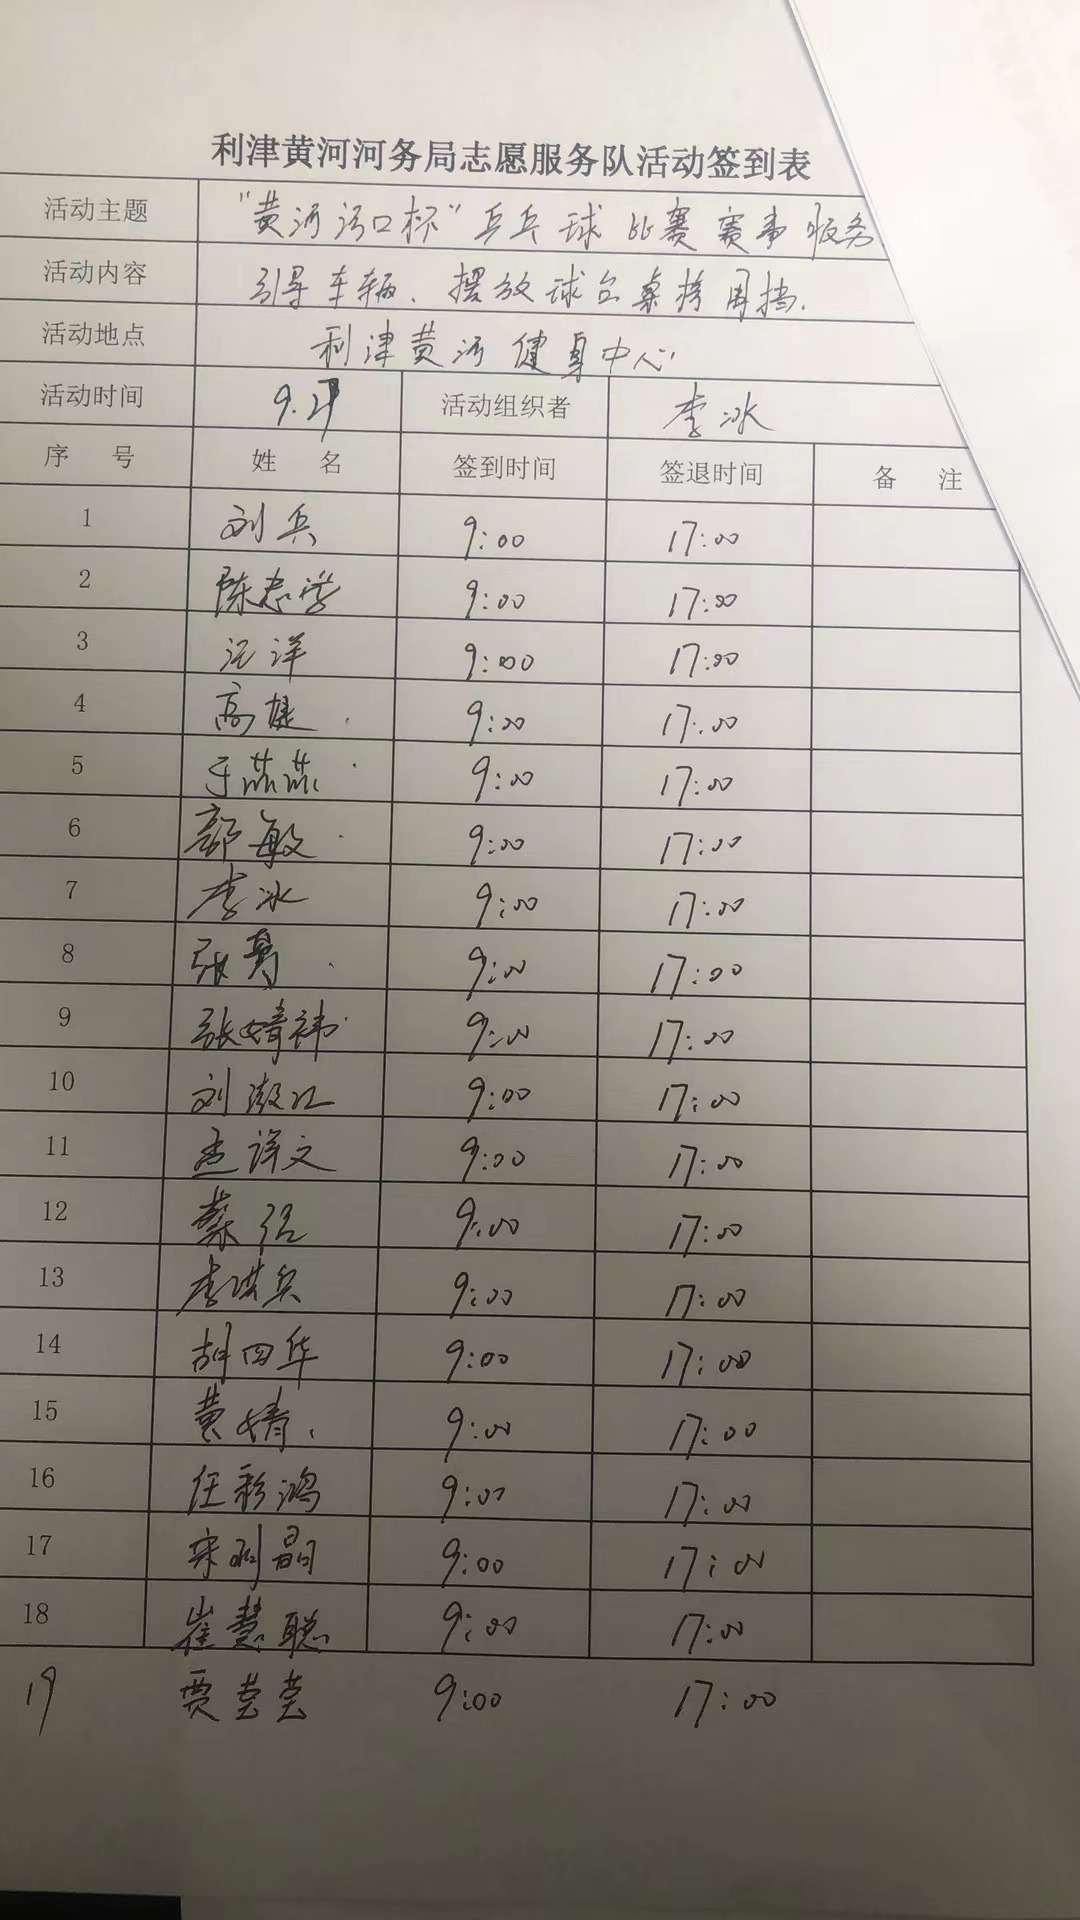 利津黄河河务局志愿服务队活动签到表
活动主题 "黄河河口杯"乒乓球比赛赛事服务
活动内容 引导车辆、摆放球台桌椅围挡.
活动地点 利津黄河健身中心
活动时间 活动组织者 李冰
序号 姓名 签到时间 签退时间 备注
1 刘兵 9:00 17:00
2 陈志学 9:00 17:00
3 汪洋 9:00 17:00
4 高健 9:00 17:00
5 于燕燕 9:00 17:00
6 郭敏 9:00 17:00
7 李冰 9:00 17:00
8 张勇 9:00 17:00
9 张婧祎 9:00 17:00
10 刘 9:00 17:00
11 译文 9:00 17:00
12 綦 9:00 17:00
13 李洪兵 9:00 17:00
14 胡四华 9:00 17:00
15 黄婧 9:00 17:00
16 任彩鸿 9:00 17:00
17 宋利晶 9:00 17:00
18 崔慧聪 9:00 17:00
19 贾莹莹 9:00 17:00